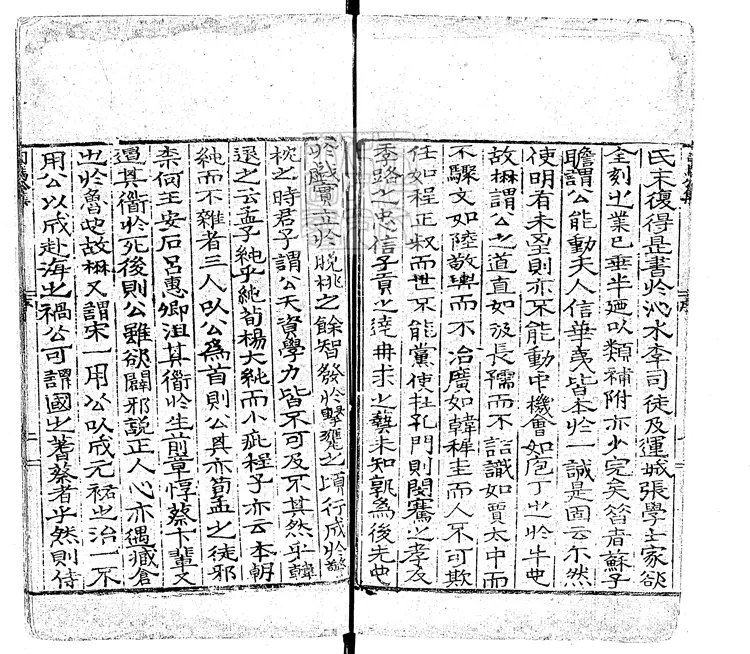 氏末復得是書於沁水李司徒及運城張學士家欲
全刻之業已垂半廼以類補附亦少完矣昔者蘇子
瞻謂公能動夫人信華夷皆本於一誠是固云尔然
使明有未盡則亦不能動中機會如庖丁之於牛也
故楙謂公之道直如汲長孺而不詘識如賈太中而
不驟文如陸敬輿而不冶廣如韓稺圭而人不可欺
任如程正叔而世不能黨使杜孔門則閔騫之孝及
季路之忠信子貢之達冉求之藝未知郭為後先也
於戲實立於脫桃之餘智發於擊甕之頃行成於警
枕之時君子謂公天資學力皆不可及不其然乎韓
退之云孟子純乎純荀楊大純而小疵程子亦云本朝
純而不雜者三人以公為首則公其亦荀孟之徒邪
柰何王安石呂惠卿沮其衜於生前章惇蔡卞輩又
遏其衜於死後則公雖欲闢邪說正人心亦遇臧倉
也於魯也故楙又謂宋一用公以成元祐之治一不
用公以成赴海之禍公可謂國之蓍蔡者乎然則侍
序